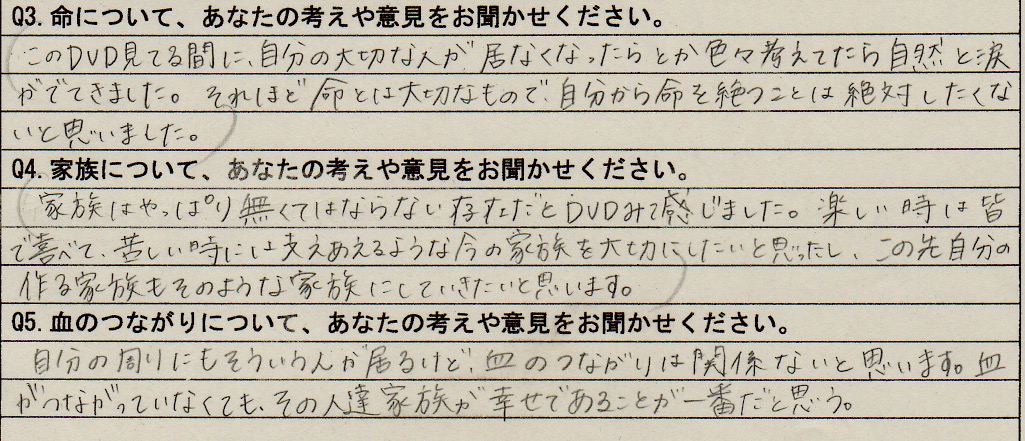 Q3. 命について、あなたの考えや意見をお聞かせください。
このDVD見てる間に、自分の大切な人が居なくなったらとか色々考えてたら自然と涙
がでてきました。それほど命とは大切なもので、自分から命を絶つことは絶対したくな
いと思いました。
Q4. 家族について、あなたの考えや意見をお聞かせください。
家族はやっぱり無くてはならない存在だとDVDみて感じました。楽しい時は皆
で喜べて、苦しい時には支えあえるような今の家族を大切にしたいと思ったし、この先自分の
作る家族もそのような家族にしていきたいと思います。
Q5. 血のつながりについて、あなたの考えや意見をお聞かせください。
自分の周りにもそういう人が居るけど、血のつながりは関係ないと思います。血
がつながっていなくても、その人達家族が幸せであることが一番だと思う。